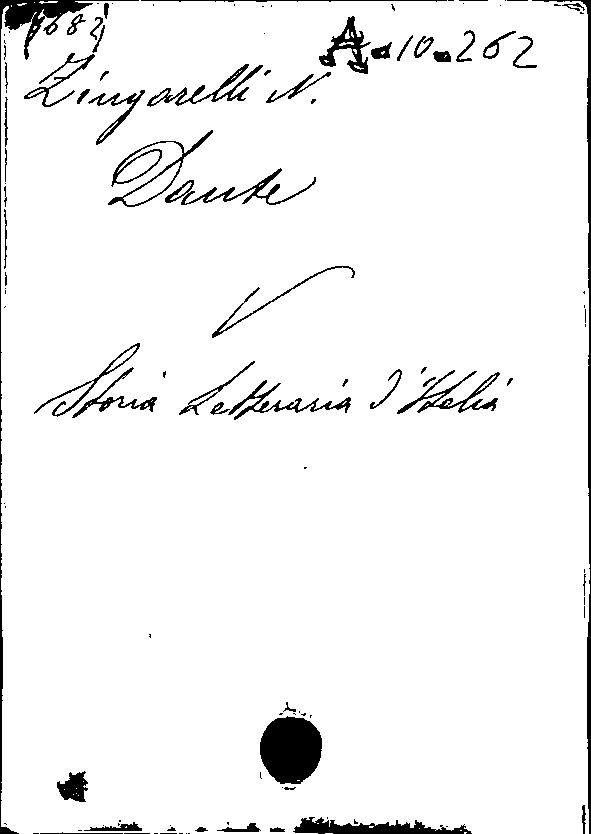 A-10-262
Zingarelli N.
Dante
V
Storia Letteraria d'Italia